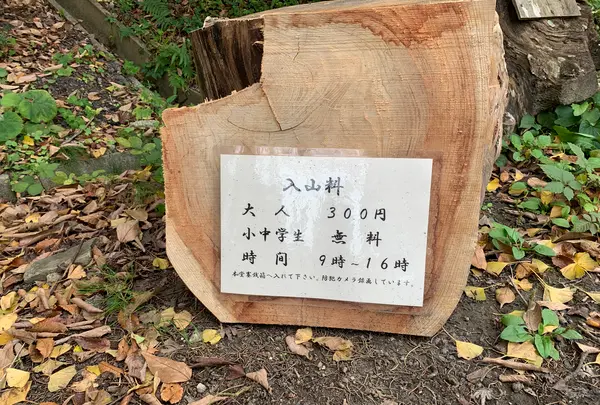 入山料
大人 300円
小中学生 無料
時間 9時~16時
本賽銭箱へ入れて下さい。防犯カメラ録画しています。